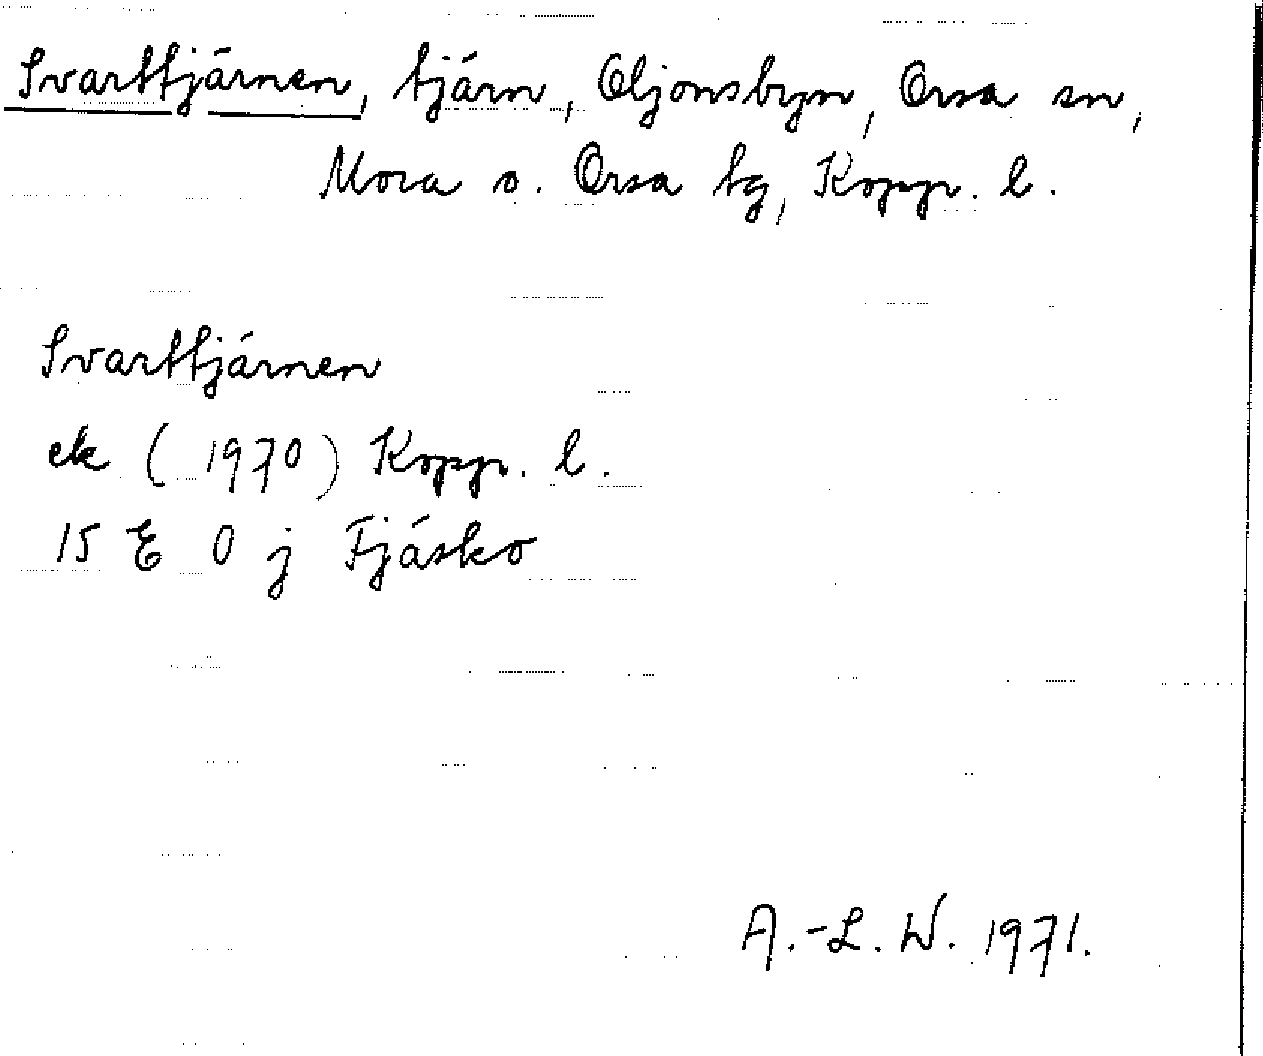 Svarttjärnen, tjärn, Oljonsbyn, Orsa sn,
Mora o. Orsa tg, Kopp. l.
Svarttjärnen
ek (1970) Kopp. l.
15 E 0 j Fjäsko
A.-L. W. 1971.